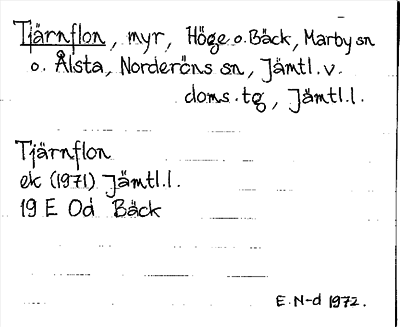 Tjärnflon, myr, Höge o. Bäck, Marby sn
o. Ålsta, Norderöns sn, Jämtl. v.
doms. tg, Jämtl. l.
Tjärnflon
ek (1971) Jämtl. l.
19 E Od Bäck
E. N-d 1972.